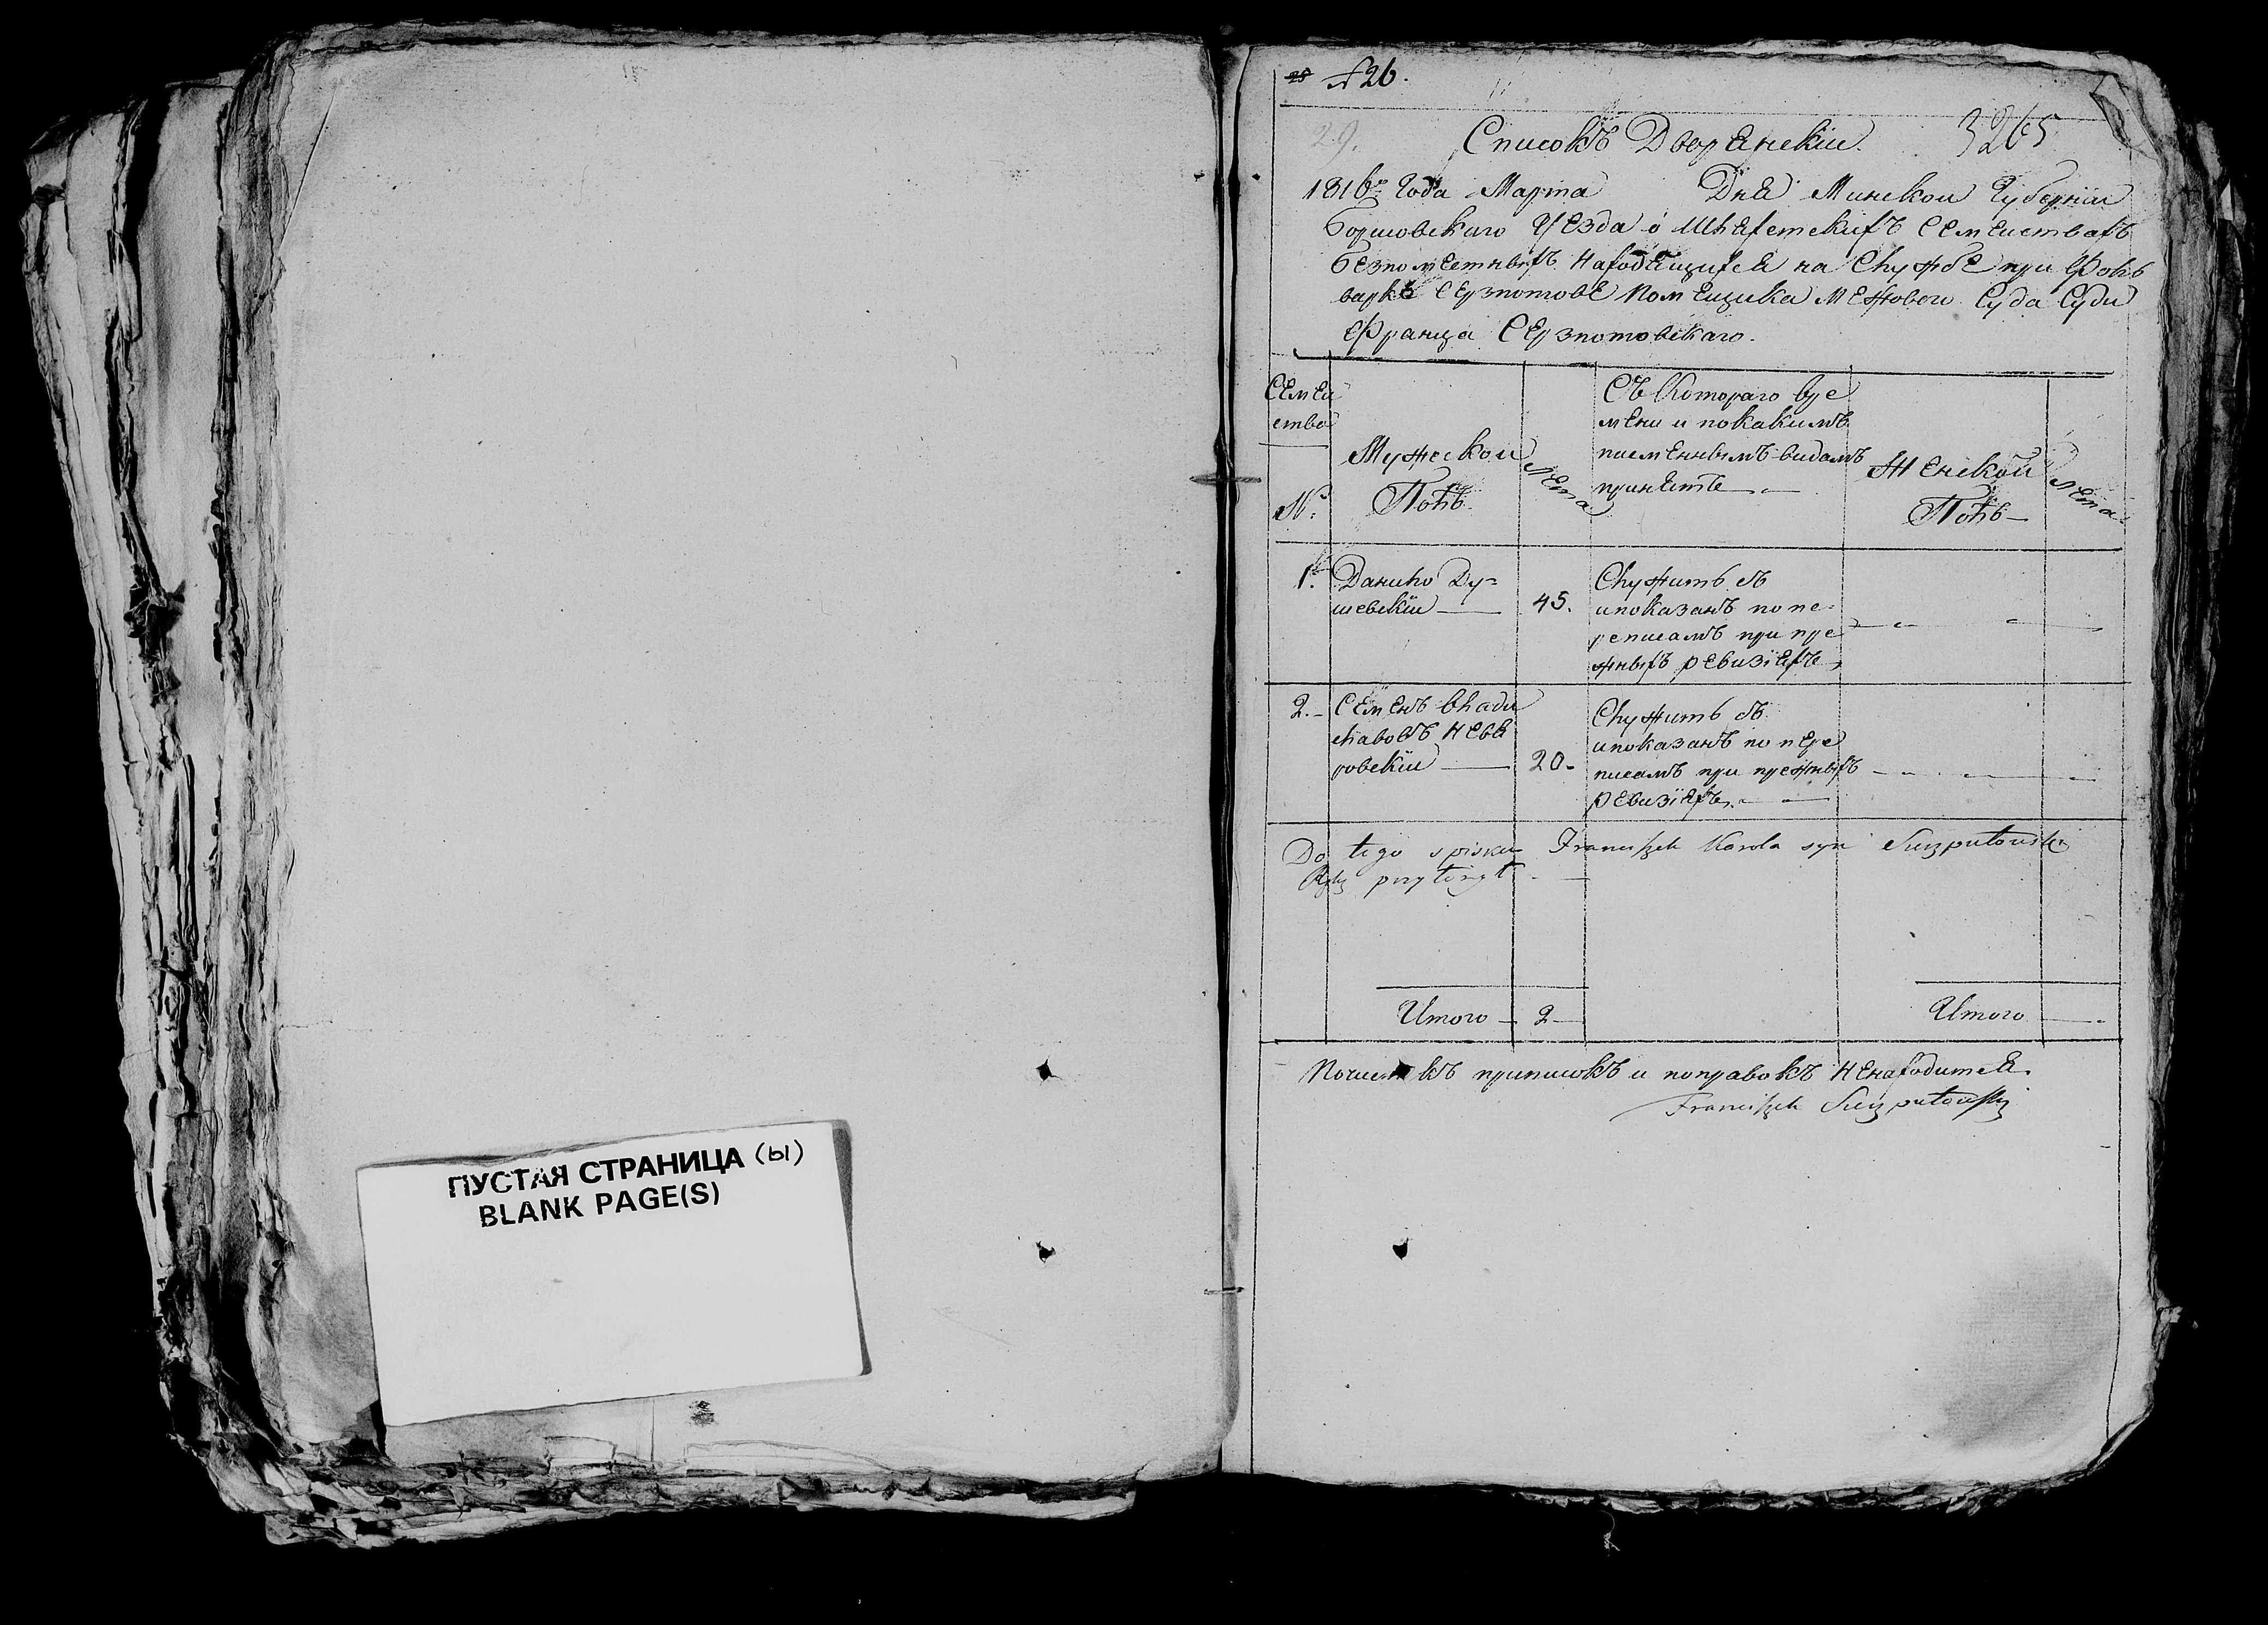 ПУСТАЯ СТРАНИЦА (ы)
BLANK PAGE(S)
28 № 26.
29. Списокъ Дворянскіи. 3265
1816го Года Марта Дня Минской Губерніи
Борисовскаго Уезда о Шляхетскихъ Семействахъ
безпоместныхъ находящихся на Службе при Фоль
варке Серзпотове Помещика Межевои Суда Судьи
Франца Серзпотовскаго.
Семеи
ство
№:
Мужескои
Полъ
Лета
Съ Котораго вре
мени и покакимъ
писменнымъ видамъ
принятъ
Женской
Полъ
Лета
1. Данило Ду=
шевскіи 45.
Служитъ съ
ипоказанъ по пе=
реписамъ при пре
жныхъ ревизіяхъ
2. Семенъ Влади
славовъ Невя
ровскіи 20
Служитъ съ
ипоказанъ по пере
писамъ при прежныхъ
ревизіяхъ
Do tego spisku Franciszek Karola syn
Итого 2
Итого
Почистокъ приписокъ и поправокъ ненаходится.
Franciszek